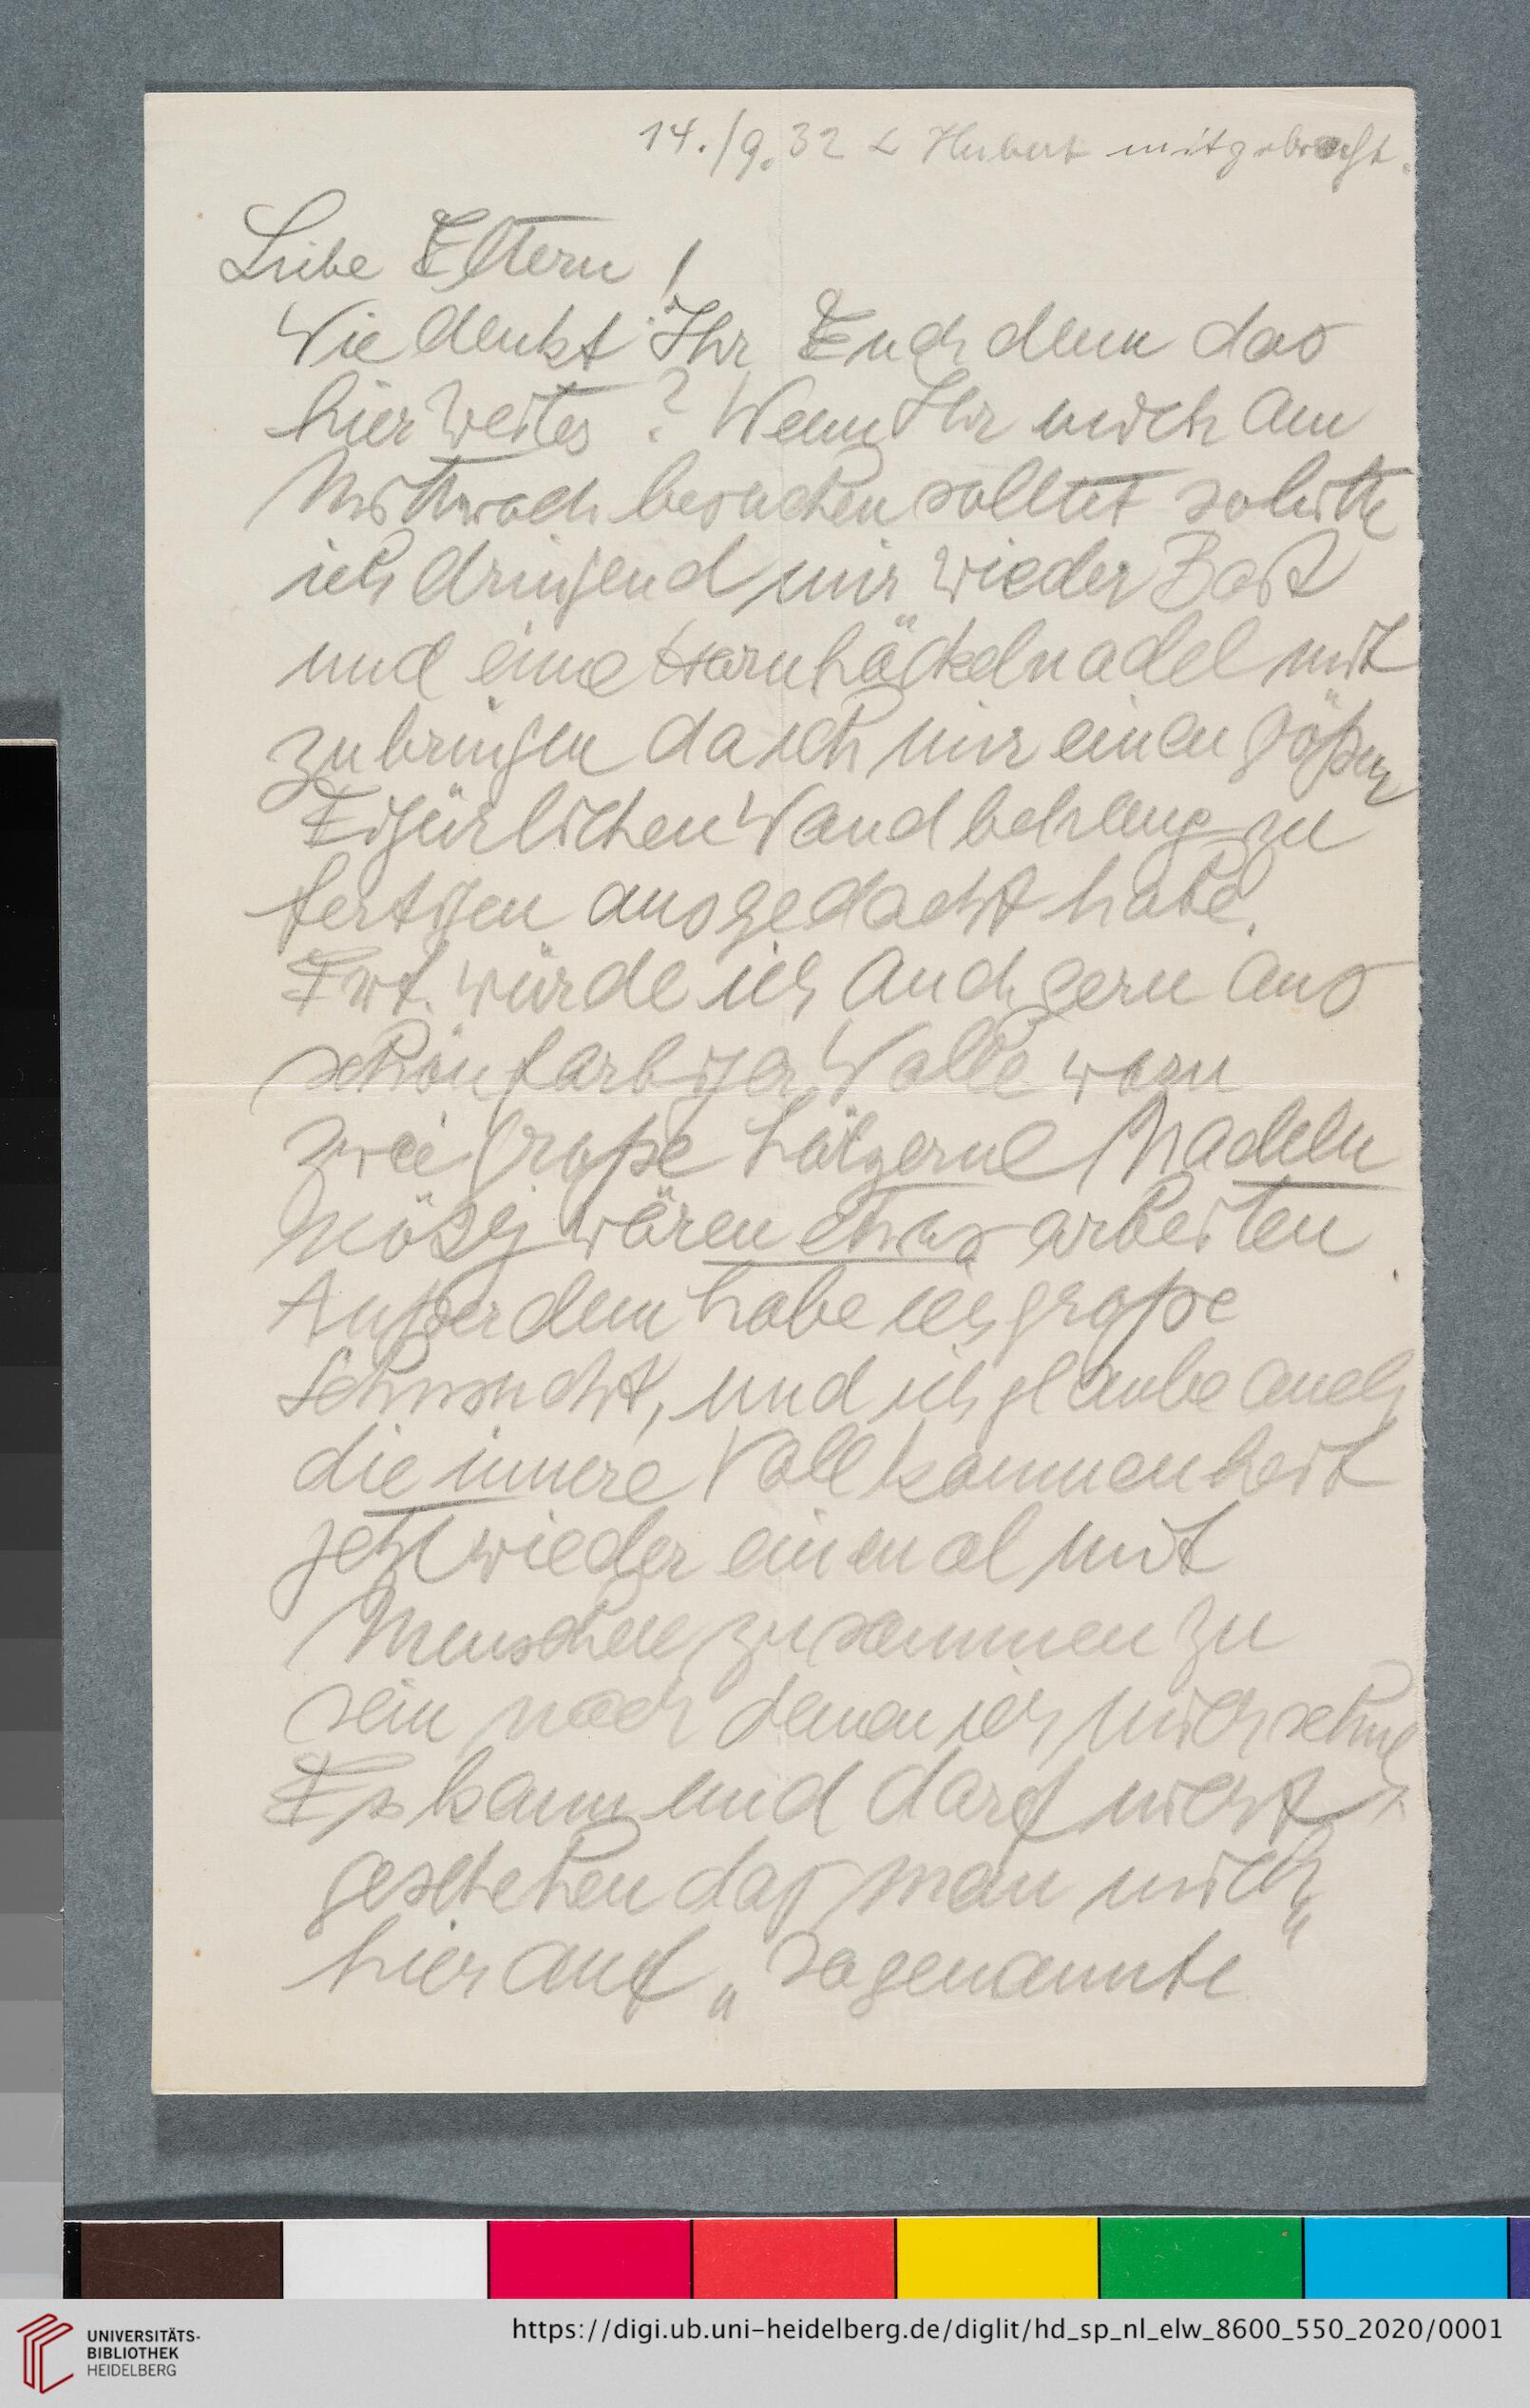 14./9.32 Hubert mitgebracht.
Liebe Eltern!
Wie denkt Ihr Euch denn das
hier weiter? Wenn Ihr mich am
Mittwoch besuchen solltet so bitte
ich dringend mir wieder Bast
und eine Hornhäckelnadel mit
zu bringen da ich mir einen
Figürlichen Wandbehang zu
fertigen ausgedacht habe.
würde ich auch gern aus
schönfarbiger Wolle wozu
zwei große hölzerne Nadeln
nötig wären etwas arbeiten
Außerdem habe ich große
Sehnsucht, und ich glaube auch
die innere Vollkommenheit
jetzt wieder einmal mit
Menschen zusammen zu
sein nach denen ich mich sehne
Es kann und darf nicht
geschehen daß man mich
hier auf „sogenannte"
UNIVERSITÄTS-
BIBLIOTHEK
HEIDELBERG
https://digi.ub.uni-heidelberg.de/diglit/hd_sp_nl_elw_8600_550_2020/0001